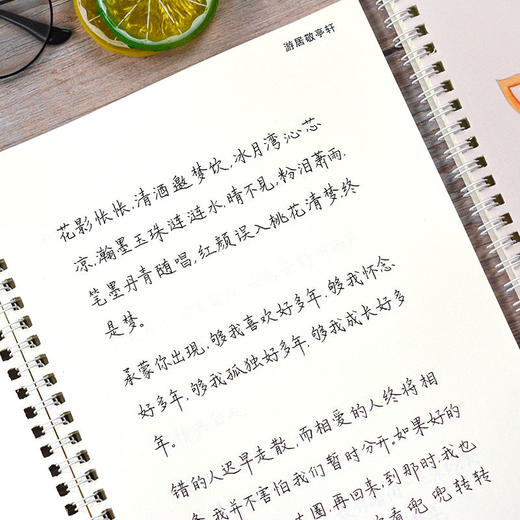 游居敬亭轩
花影怅怅,清酒邀梦饮,冰月湾沁芯
凉,瀚墨玉珠涟涟水,晴不见,粉泪萧雨.
笔墨丹青随唱,红颜误入桃花清梦,终
是梦。
承蒙你出现,够我喜欢好多年,够我怀念
好多年,够我孤独好多年,够我成长好多
年。
错的人迟早走散,而相爱的人终将相
我并不害怕我们暂时分开。如果好的
圈,再回来,到那时,我也
着兜兜转转